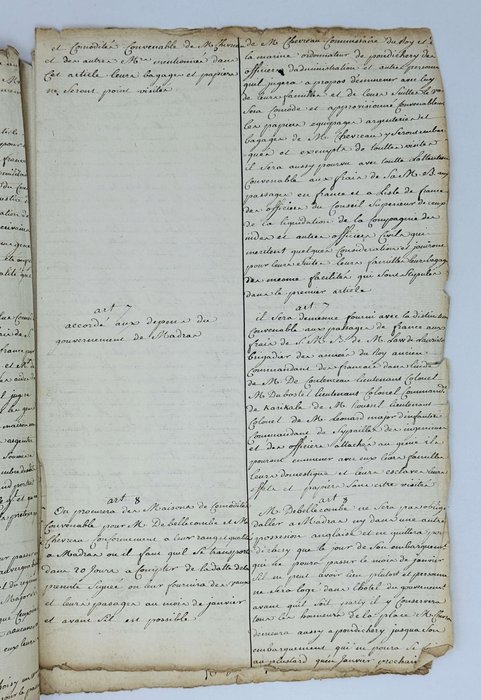 et Comodité Convenable de Mr Chevreau
et des autres Mrs mentionnés dans
Cet article leurs bagage et papiers
ne seront point visités
art 7
accordé aux depens du
gouvernement de Madras
art 8
On procurera des Maisons de Comodité
Convenable pour M. De bellecombe et M.
Chevreau Conformement a leur rang et qualité
a Madras ou il faut qu'il se transporte
dans 20 Jours a Compter de la datte de la
presente Signée, on leur fournira des vaux
et leurs passages au mois de janvier
et avant S'il est possible
de M. Chevreau Commissaire du Roy et de
la marine ordonnateur de pondichery des
officiers d'administration et autres personnes
qu'il jugera a propos d'emmener avec luy
de leurs familles et de leurs Suittes le vau
Sera Comode et approvisionné Convenablement
les papiers equipages argenteries et
bagages de M. Chevreau y seront embar
qués et exempts de touttes visites
il Sera aussy pourvu avec toutte l'attention
Convenable aux frais de Sa M. B. au
passage en france et a l'isle de france
des officiers du Conseil Superieur de ceux
de la liquidation de la Compagnie des
indes et autres officiers Civils qui
meritent quelques Considerations et jouirons
pour leurs Suites leurs familles leurs bagages
des mesme facilités qui Sont Stipulés
dans le premier article
art 7
il Sera de mesme fourni avec la distinction
Convenable aux passages de france aux
frais de S. M. B. de M. Law de Lauriston
brigadier des armées du Roy ancien
Commandant des francais dans l'inde
de M. De Coutenceau lieutenant Colonel
M. Dubostel lieutenant Colonel Command.
de Karikala de M. lieutenant
Colonel de M. Leonard major d'infanterie
Commandant de Sypailles des ingenieurs
et des officiers attachés au génie ils
pouront emmener avec eux leurs familles
leurs domestiques et leurs esclaves leurs
effets et papiers Sans estre visités
art 8
M. De bellecombe ne Sera pas obligé
d'aller a Madras ny dans une autre
possession anglaise et ne quittera pon
dichery que le jour de Son embarquement
qui ne poura passer le mois de janvier
S'il ne peut avoir lieu plutot et personne
ne Sera logé dans l'hotel du gouvernement
avant qu'il soit parti il y Conservera
tous les honneurs de la place M. Chevreau
demeurera aussy a pondichery jusqu'a Son
embarquement qui ne poura Se
au plustard qu'en Janvier prochain